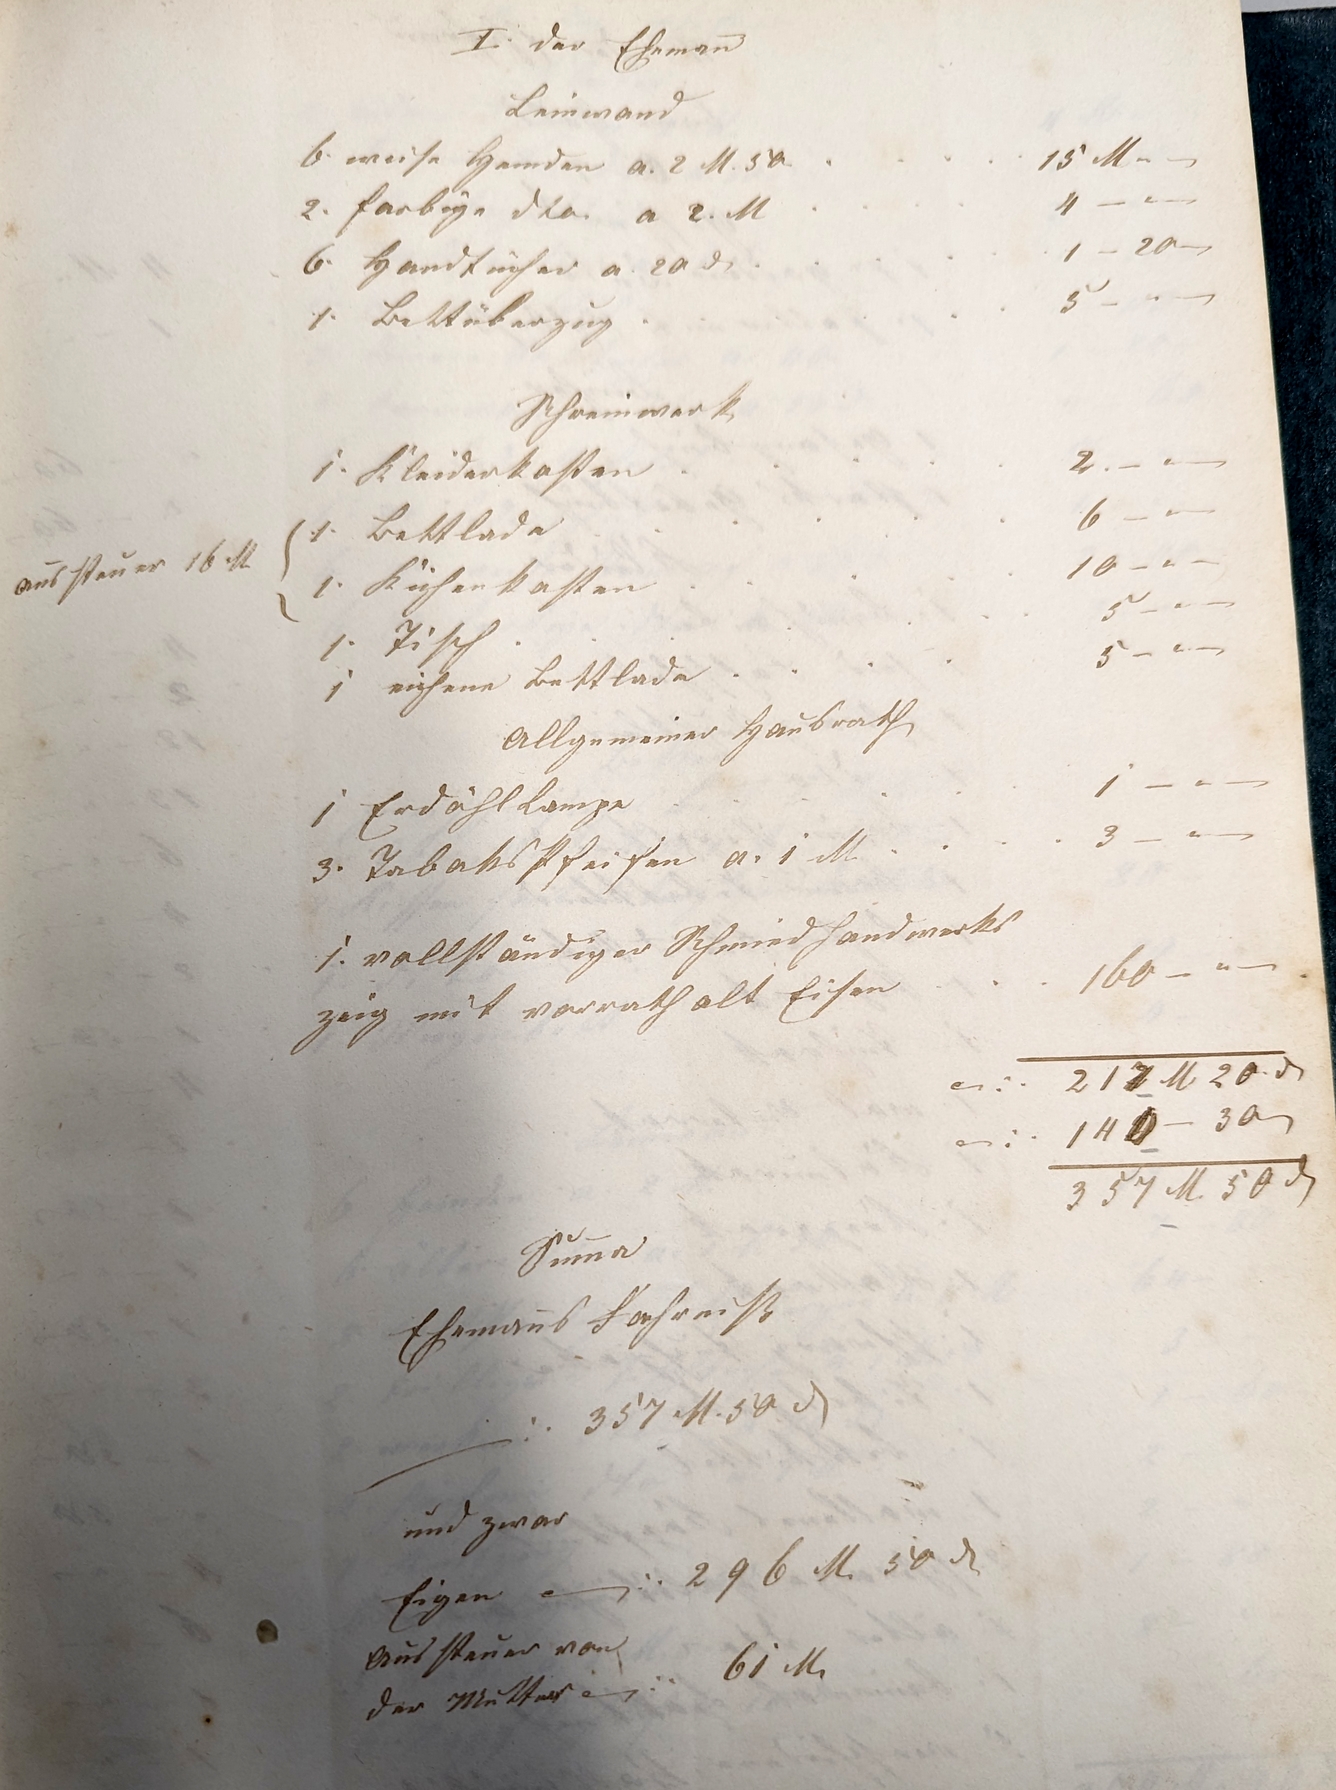 I. der Ehemañ
Leinwand
6. weise Hemden a. 2 M. 50. 15 M " —
2. farbige dto. a 2. M 4 — " —
6. Handtücher a. 20 ₰. 1 — 20 —
1. Bettüberzug 5 — " —
Schreinwerk
1. Kleiderkasten 2. — " —
1. Bettlade 6 — " —
Aussteuer 16 M
1. Küchenkasten 10 — " —
1. Tisch 5 — " —
1 eichene Bettlade 5 — " —
Allgemeiner Hausrath
1 Erdöhl Lampe 1 — " —
3. Tabaks Pfeifen a. 1 M 3 — " —
1. vollständiger Schmiedhandwerks
zeig mit vorrath alt Eisen 160 — " —
217 M 20 ₰
140 — 30
357 M 50 ₰
Suma
Ehemañs Fahrniß
357 M. 50 ₰
und zwar
Eigen 296 M. 50 ₰
Aussteuer von
der Mutter 61 M.